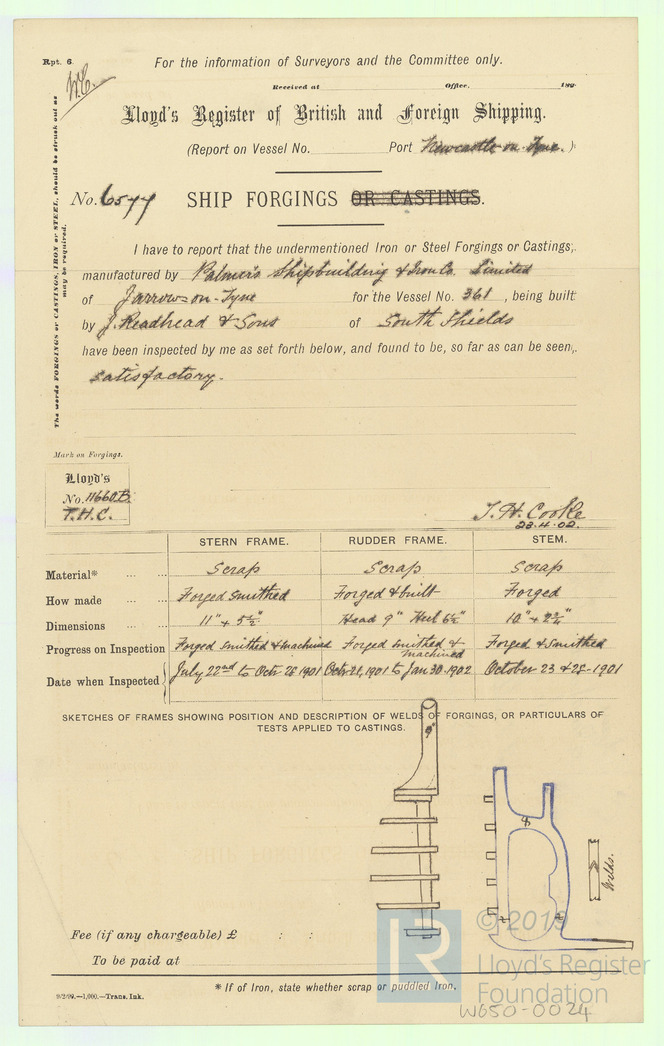 Rpt. 6.
For the information of Surveyors and the Committee only.
W.C.
Received at Office. 189
Lloyd's Register of British and Foreign Shipping.
(Report on Vessel No. Port Newcastle-on-Tyne.)
No. 6577 SHIP FORGINGS OR CASTINGS.
The words FORGINGS or CASTINGS, IRON or STEEL, should be struck out as
may be required.
I have to report that the undermentioned Iron or Steel Forgings or Castings,
manufactured by Palmer's Shipbuilding & Iron Co. Limited
of Jarrow-on-Tyne for the Vessel No. 361, being built
by J. Readhead & Sons of South Shields
have been inspected by me as set forth below, and found to be, so far as can be seen,
satisfactory.
Mark on Forgings.
Lloyd's
No. 11660.B.
T.H.C.
T. H. Cooke
23.4.02.
STERN FRAME. RUDDER FRAME. STEM.
Material* Scrap Scrap Scrap
How made Forged smithed Forged & built Forged
Dimensions 11" + 5½" Head 9" Heel 6½" 10" + 2¾"
Progress on Inspection Forged smithed & machined Forged smithed & machined Forged & smithed
Date when Inspected July 22nd to Octr 28 1901 Octr 21, 1901 to Jan 30 1902 October 23 & 28 - 1901
SKETCHES OF FRAMES SHOWING POSITION AND DESCRIPTION OF WELDS OF FORGINGS, OR PARTICULARS OF
TESTS APPLIED TO CASTINGS.
9"
Welds.
Fee (if any chargeable) £ : :
To be paid at
* If of Iron, state whether scrap or puddled Iron.
9/2/99.—1,000.—Trans. Ink.
LR
© 2019
Lloyd's Register
Foundation
W650-0024